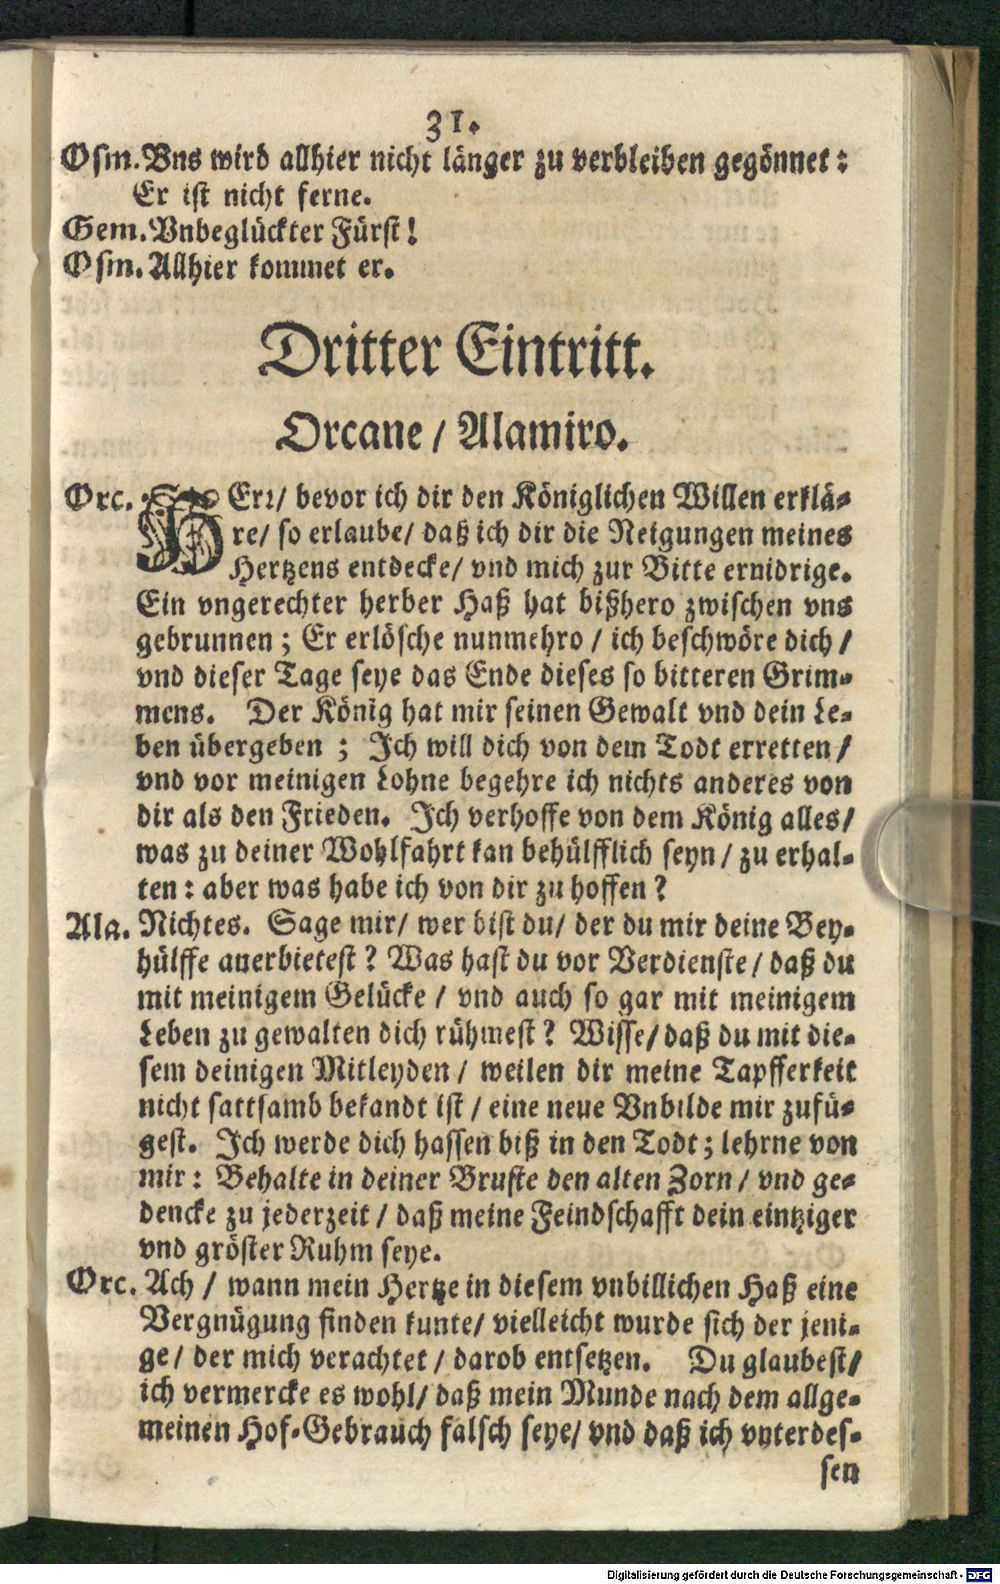 31.
Osm. Vns wird allhier nicht länger zu verbleiben gegönnet:
Er ist nicht ferne.
Gem. Vnbeglückter Fürst!
Osm. Allhier kommet er.
Dritter Eintritt.
Orcane / Alamiro.
Orc. HErr/ bevor ich dir den Königlichen Willen erklä-
re/ so erlaube/ daß ich dir die Neigungen meines
Hertzens entdecke/ vnd mich zur Bitte ernidrige.
Ein vngerechter herber Haß hat bißhero zwischen vns
gebrunnen; Er erlösche nunmehro / ich beschwöre dich /
vnd dieser Tage seye das Ende dieses so bitteren Grim-
mens. Der König hat mir seinen Gewalt vnd dein Le-
ben übergeben; Ich will dich von dem Todt erretten/
vnd vor meinigen Lohne begehre ich nichts anderes von
dir als den Frieden. Ich verhoffe von dem König alles/
was zu deiner Wohlfahrt kan behülfflich seyn / zu erhal-
ten: aber was habe ich von dir zu hoffen?
Ala. Nichtes. Sage mir/ wer bist du/ der du mir deine Bey-
hülffe anerbietest? Was hast du vor Verdienste / daß du
mit meinigem Gelücke / vnd auch so gar mit meinigem
Leben zu gewalten dich rühmest? Wisse/ daß du mit die-
sem deinigen Mitleyden / weilen dir meine Tapfferkeit
nicht sattsamb bekandt ist / eine neue Vnbilde mir zufü-
gest. Ich werde dich hassen biß in den Todt; lehrne von
mir: Behalte in deiner Bruste den alten Zorn / vnd ge-
dencke zu jederzeit / daß meine Feindschafft dein eintziger
vnd gröster Ruhm seye.
Orc. Ach / wann mein Hertze in diesem vnbillichen Haß eine
Vergnügung finden kunte/ vielleicht wurde sich der jeni-
ge/ der mich verachtet / darob entsetzen. Du glaubest/
ich vermercke es wohl/ daß mein Munde nach dem allge-
meinen Hof-Gebrauch falsch seye/ vnd daß ich vnterdes-
sen
Digitalisierung gefördert durch die Deutsche Forschungsgemeinschaft - DFG